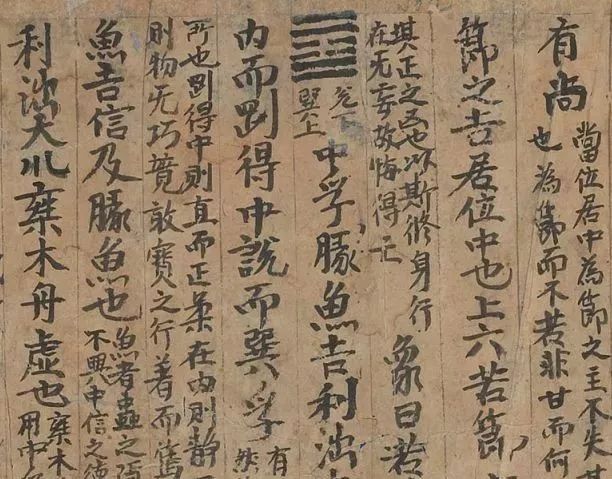 有尚
當位居中為節之主不失其
也為節而不若非甘而何
節之吉居位中也上六若節
其正之凶也以斯脩身行
在无妄故悔得亡
象曰若
兌下
巽上
中孚豚魚吉利涉
內而剛得中說而巽孚
有
然
所也剛得中則直而正柔在內則静
則物无巧竸敢實之行着而篤
魚吉信及豚魚也
魚者蟲之
不興中信之德
利涉大川乗木舟虛也
乗木
用中